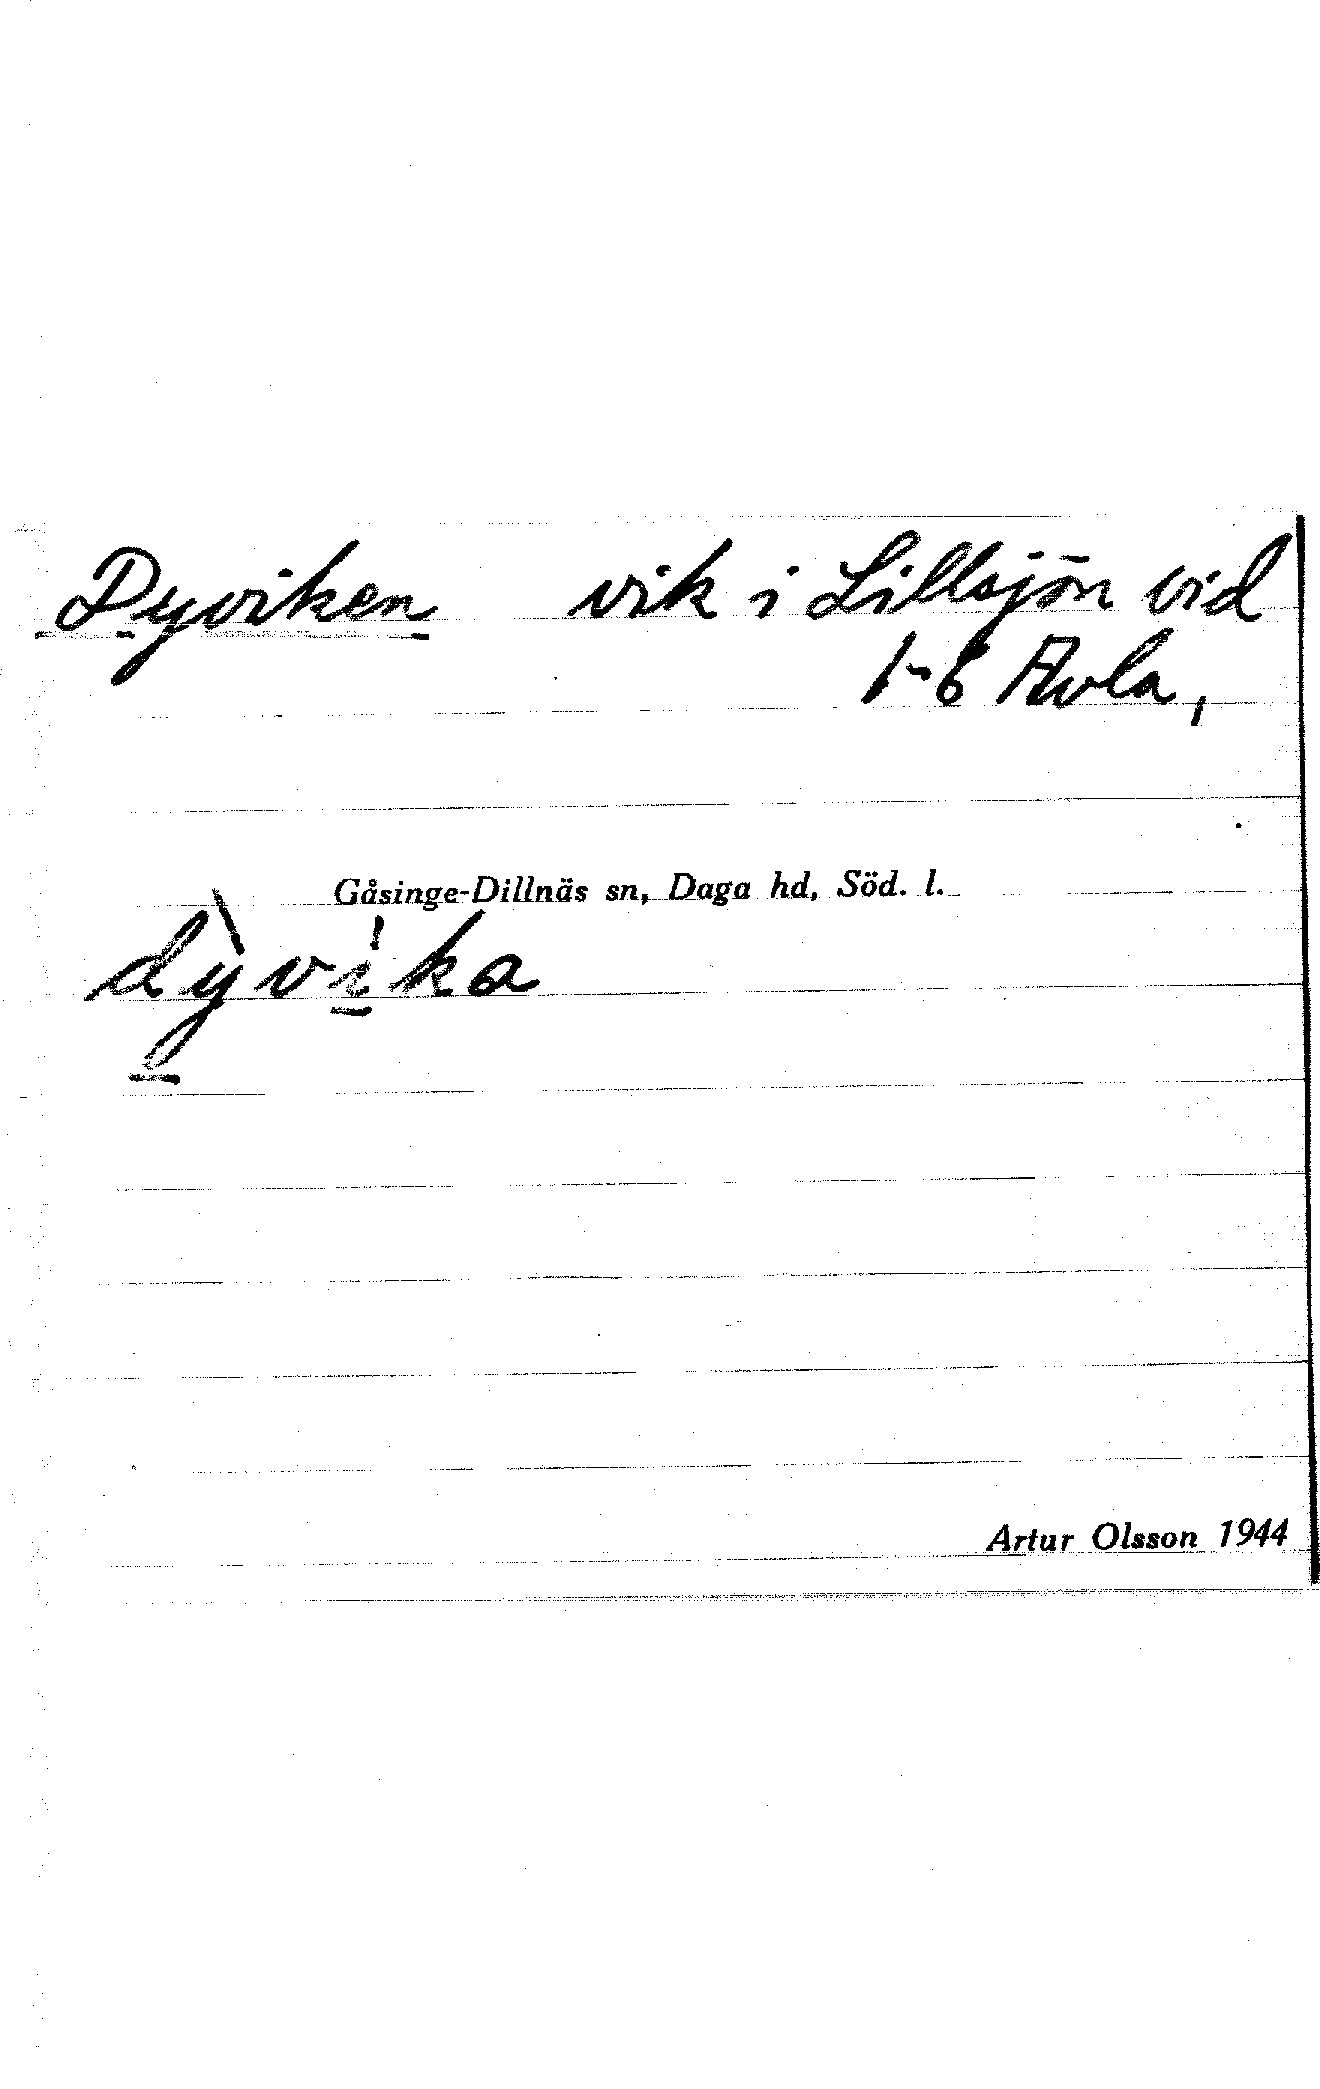 Dyviken vik i Lillsjön vid
1-6 Avla,
Gåsinge-Dillnäs sn, Daga hd, Söd. l.
dỳ̲ví̲ka
Artur Olsson 1944